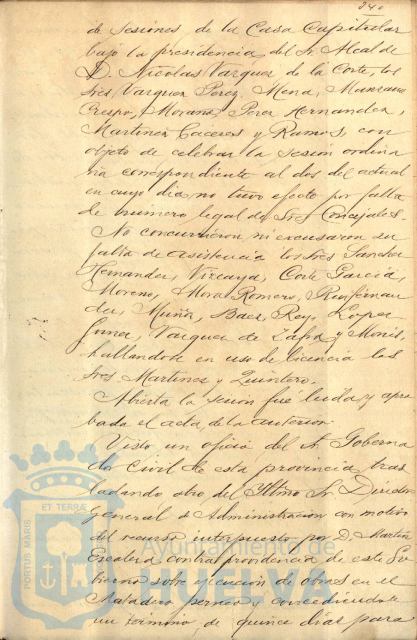 340
de sesiones de la Casa Capitular
bajo la presidencia del Sr. Alcalde
D. Nicolas Vazquez de la Corte, los
Sres Vazquez Perez, Mena, Manzano
Crespo, Morano, Perez Hernandez,
Martinez Caceres y Ramos, con
objeto de celebrar la sesion ordina
ria correspondiente al dos del actual
en cuyo dia no tuvo efecto por falta
de numero legal de Sres Concejales.
No concurrieron ni excusaron su
falta de asistencia los Sres Sanchez
Hernandez, Vizcaya, Corte Garcia,
Moreno, Mora Romero,
Muñiz, Baez, Rey, Lopez
Gomez, Vazquez de Zafra y Monis,
hallandose en uso de licencia los
Sres Martinez y Quintero.
Abierta la sesion fué leida y apro
bada el acta de la anterior.
Visto un oficio del Sr. Goberna
dor Civil de esta provincia tras
ladando otro del Iltmo Sr. Director
general de Administracion con motivo
del recurso interpuesto por D. Martin
Escalera contra providencia de este Go
bierno sobre ejecucion de obras en el
Matadero y concediendole
un termino de quince dias para
ET TERRA
PORTUS MARIS
Ayuntamiento de
HUELVA